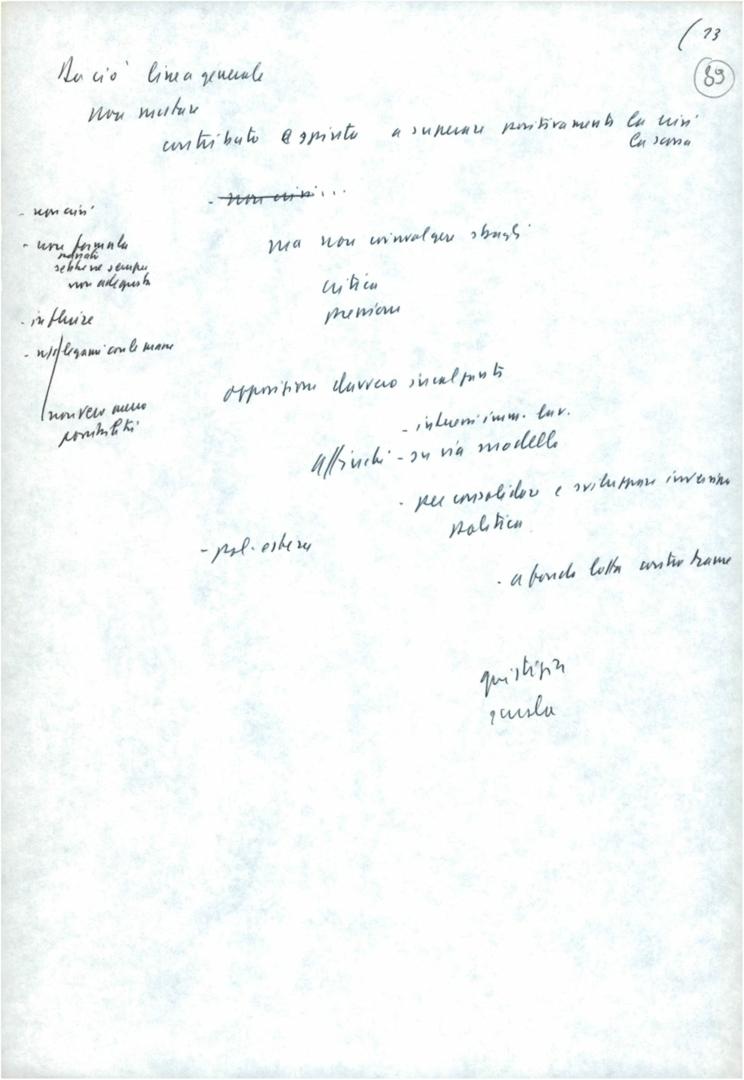 ( 13
89
Da ciò linea generale
non mutare
contributo e spinta a superare positivamente la crisi
la scorsa
- non crisi...
- non crisi
- non formula
sebbene sempre
non adeguata
- influire
- legami con le masse
non vero meno
possibilità
ma non coinvolgere sbagli
critica
pressione
opposizione davvero incalzante
- interessi imm. lav.
affinché - su via modello
- per consolidare e sviluppare inversione
politica
- pol. estera
- a fondo lotta contro trame
giustizia
scuola